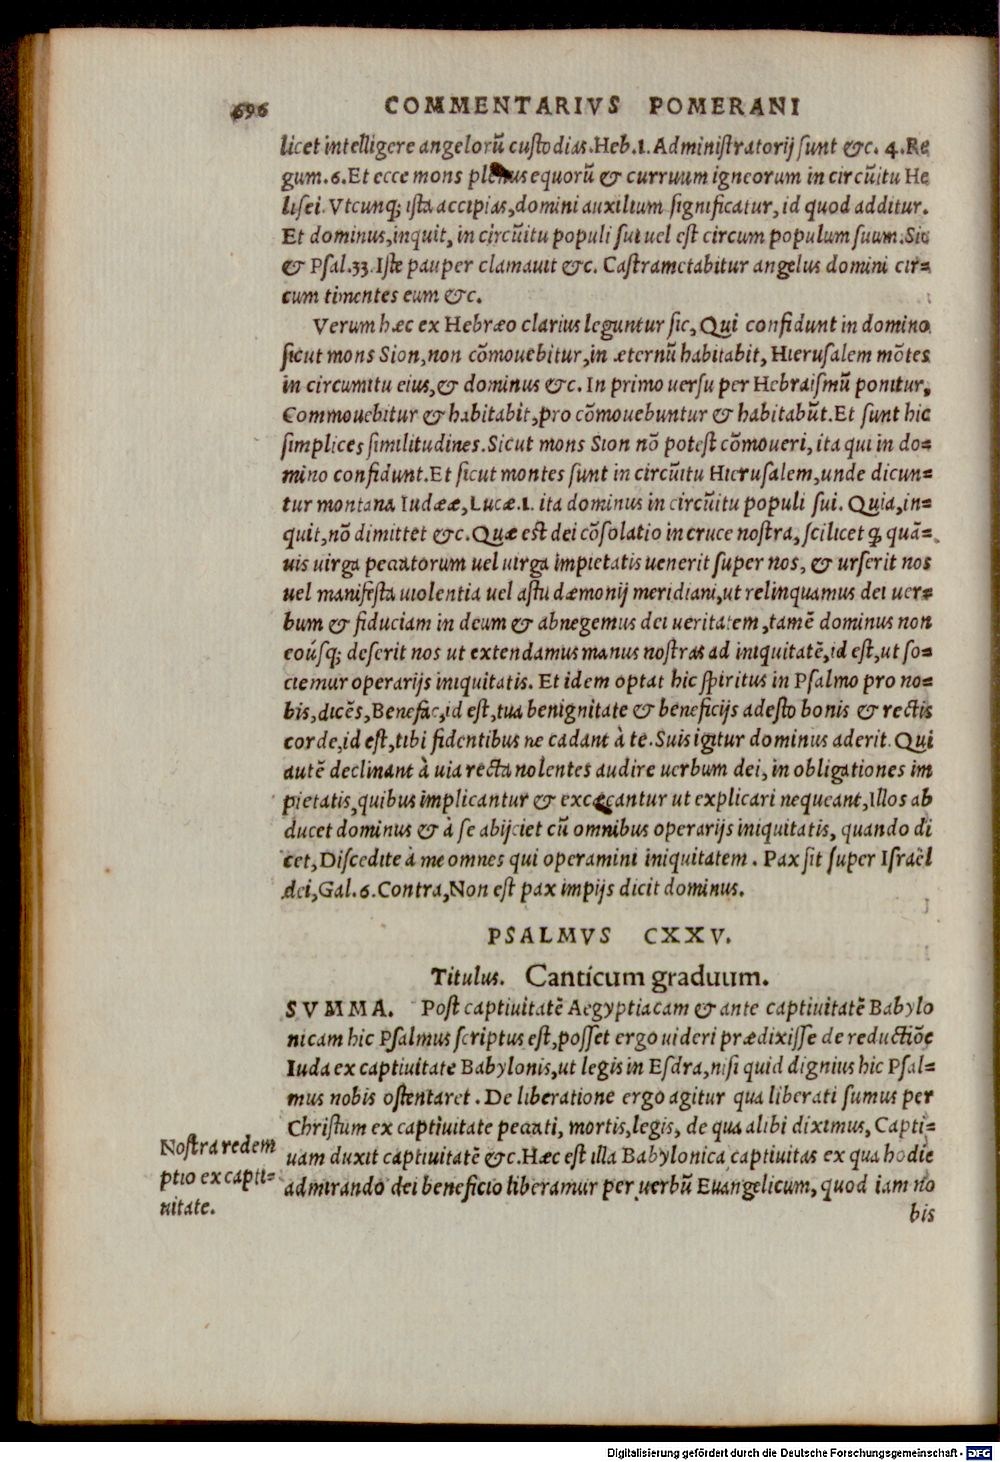 696 COMMENTARIVS POMERANI
licet intelligere angelorũ custodias. Heb. 1. Administratorij sunt &c. 4. Re
gum. 6. Et ecce mons plenus equorũ & curruum igneorum in circũitu He
lisei. Vtcunq; ista accipias, domini auxilium significatur, id quod additur.
Et dominus, inquit, in circũitu populi sui uel est circum populum suum. Sic
& Psal. 33. Iste pauper clamauit &c. Castrametabitur angelus domini cir-
cum timentes eum &c.
Verum hæc ex Hebræo clarius leguntur sic, Qui confidunt in domino
sicut mons Sion, non cõmouebitur, in æternũ habitabit, Hierusalem mõtes
in circumitu eius, & dominus &c. In primo uersu per Hebraismũ ponitur,
Commouebitur & habitabit, pro cõmouebuntur & habitabũt. Et sunt hic
simplices similitudines. Sicut mons Sion nõ potest cõmoueri, ita qui in do-
mino confidunt. Et sicut montes sunt in circũitu Hierusalem, unde dicun-
tur montana Iudææ, Lucæ. 1. ita dominus in circũitu populi sui. Quia, in-
quit, nõ dimittet &c. Quæ est dei cõsolatio in cruce nostra, scilicet ꝙ quã-
uis uirga peccatorum uel uirga impietatis uenerit super nos, & urserit nos
uel manifesta uiolentia uel astu dæmonij meridiani, ut relinquamus dei uer-
bum & fiduciam in deum & abnegemus dei ueritatem, tamẽ dominus non
eoúsq; deserit nos ut extendamus manus nostras ad iniquitatẽ, id est, ut so-
ciemur operarijs iniquitatis. Et idem optat hic spiritus in Psalmo pro no-
bis, dicẽs, Benefac, id est, tua benignitate & beneficijs adesto bonis & rectis
corde, id est, tibi fidentibus ne cadant à te. Suis igitur dominus aderit. Qui
autẽ declinant à uia recta nolentes audire uerbum dei, in obligationes im
pietatis, quibus implicantur & excæcantur ut explicari nequeant, illos ab
ducet dominus & à se abijciet cũ omnibus operarijs iniquitatis, quando di
cet, Discedite à me omnes qui operamini iniquitatem. Pax sit super Israël
dei, Gal. 6. Contra, Non est pax impijs dicit dominus.
PSALMVS CXXV.
Titulus. Canticum graduum.
SVMMA. Post captiuitatẽ Aegyptiacam & ante captiuitatẽ Babylo
nicam hic Psalmus scriptus est, posset ergo uideri prædixisse de reductiõe
Iuda ex captiuitate Babylonis, ut legis in Esdra, nisi quid dignius hic Psal-
mus nobis ostentaret. De liberatione ergo agitur qua liberati sumus per
Christum ex captiuitate peccati, mortis, legis, de qua alibi diximus, Capti-
uam duxit captiuitatẽ &c. Hæc est illa Babylonica captiuitas ex qua hodie
admirando dei beneficio liberamur per uerbũ Euangelicum, quod iam no
bis
Nostra redem
ptio ex capti-
uitate.
Digitalisierung gefördert durch die Deutsche Forschungsgemeinschaft - DFG